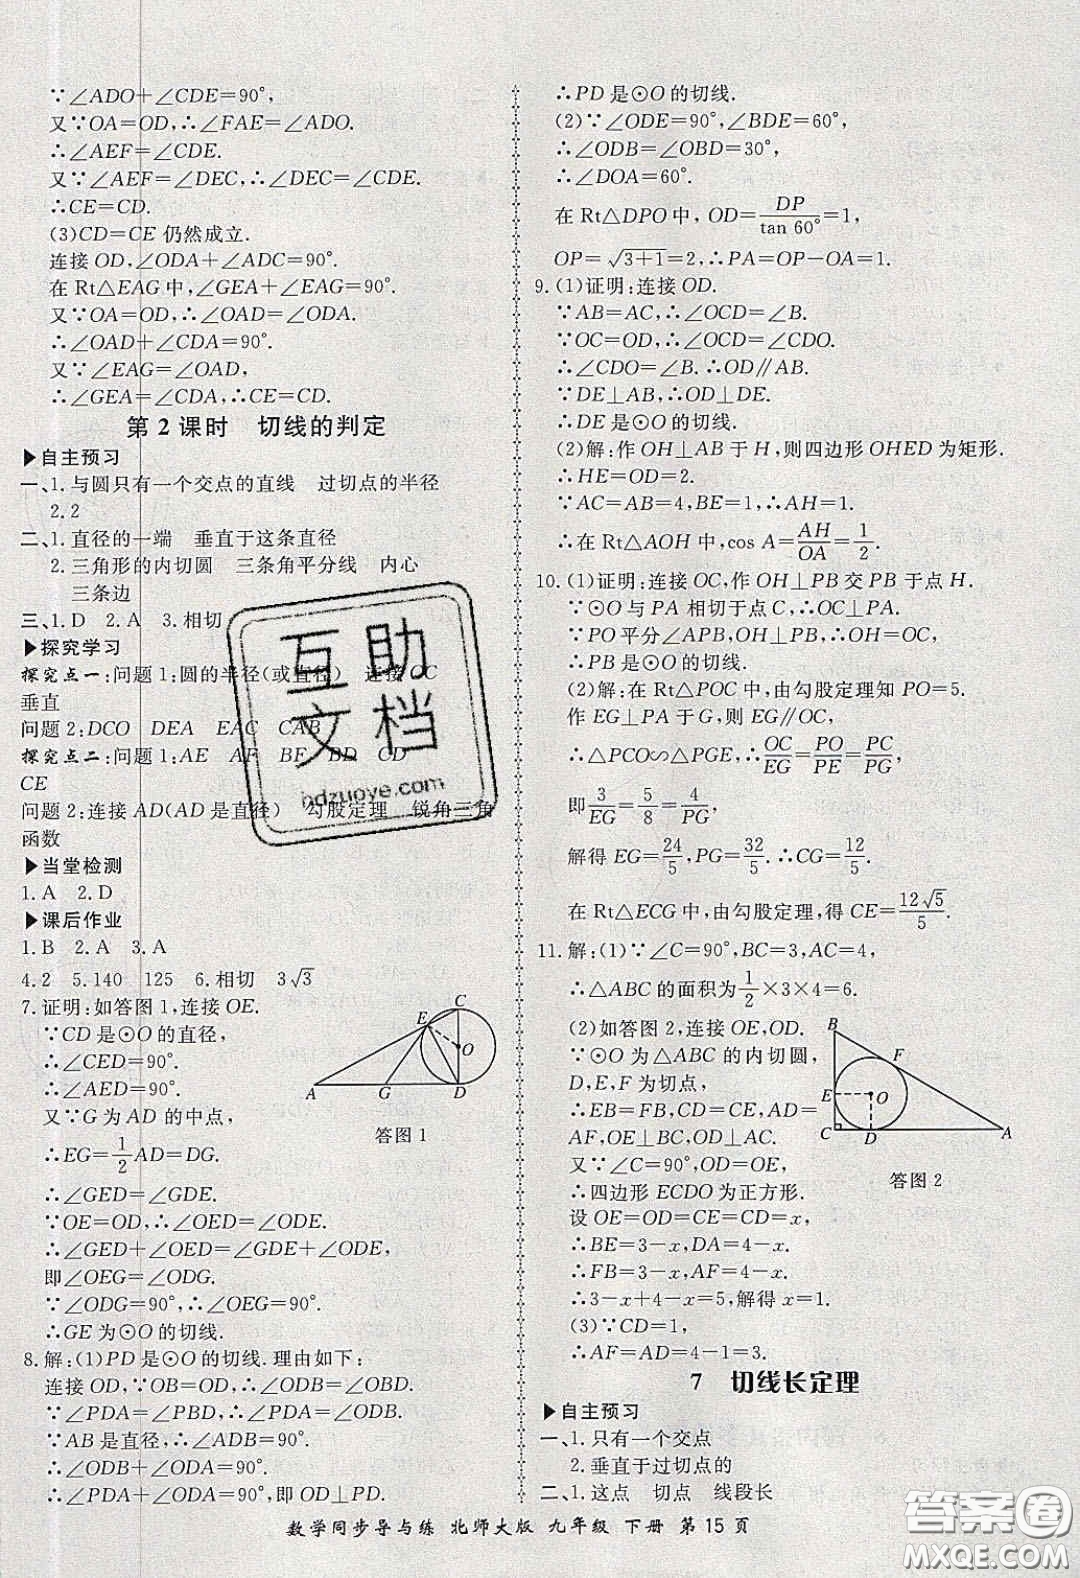 ∵∠ADO+∠CDE=90°,
又∵OA=OD,∴∠FAE=∠ADO.
∴∠AEF=∠CDE.
又∵∠AEF=∠DEC,∴∠DEC=∠CDE.
∴CE=CD.
(3)CD=CE 仍然成立.
连接 OD,∠ODA+∠ADC=90°.
在 Rt△EAG 中,∠GEA+∠EAG=90°.
又∵OA=OD,∴∠OAD=∠ODA.
∴∠OAD+∠CDA=90°.
又∵∠EAG=∠OAD,
∴∠GEA=∠CDA,∴CE=CD.
第 2 课时 切线的判定
▶自主预习
一、1.与圆只有一个交点的直线 过切点的半径
2.2
二、1.直径的一端 垂直于这条直径
2.三角形的内切圆 三条角平分线 内心
三条边
三、1.D 2.A 3.相切
▶探究学习
探究点一:问题 1:圆的半径(或直径) 连接 OC
垂直
问题 2:DCO DEA EAC CAB
探究点二:问题 1:AE AF BF BD CD
CE
问题 2:连接 AD(AD 是直径) 勾股定理 锐角三角
函数
▶当堂检测
1.A 2.D
▶课后作业
1.B 2.A 3.A
4.2 5.140 125 6.相切 3√3
7.证明:如答图 1,连接 OE.
∵CD 是⊙O 的直径,
∴∠CED=90°.
∴∠AED=90°.
又∵G 为 AD 的中点,
∴EG=1/2AD=DG.
∴∠GED=∠GDE.
∵OE=OD,∴∠OED=∠ODE.
∴∠GED+∠OED=∠GDE+∠ODE.
即∠OEG=∠ODG.
∵∠ODG=90°,∴∠OEG=90°.
∴GE 为⊙O 的切线.
C
E
O
A G D
答图 1
8.解:(1)PD 是⊙O 的切线.理由如下:
连接 OD,∵OB=OD,∴∠ODB=∠PBD.
∵∠PDA=∠PBD,∴∠PDA=∠ODB.
∵AB 是直径,∴∠ADB=90°.
∴∠ODB+∠ODA=90°.
∴∠PDA+∠ODA=90°,即 OD⊥PD.
∴PD 是⊙O 的切线.
(2)∵∠ODE=90°,∠BDE=60°,
∴∠ODB=∠OBD=30°,
∴∠DOA=60°.
在 Rt△DPO 中,OD=DP/tan 60°=1,
OP=√(3+1)=2,∴PA=OP−OA=1.
9.(1)证明:连接 OD.
∵AB=AC,∴∠OCD=∠B.
∵OC=OD,∴∠OCD=∠CDO.
∴∠CDO=∠B.∴OD∥AB.
∵DE⊥AB,∴OD⊥DE.
∴DE 是⊙O 的切线.
(2)解:作 OH⊥AB 于 H,则四边形 OHED 为矩形.
∴HE=OD=2.
∵AC=AB=4,BE=1,∴AH=1.
∴在 Rt△AOH 中,cos A=AH/OA=1/2.
10.(1)证明:连接 OC,作 OH⊥PB 交 PB 于点 H.
∵⊙O 与 PA 相切于点 C,∴OC⊥PA.
∵PO 平分∠APB,OH⊥PB,∴OH=OC.
∴PB 是⊙O 的切线.
(2)解:在 Rt△POC 中,由勾股定理知 PO=5.
作 EG⊥PA 于 G,则 EG∥OC,
∴△PCO∽△PGE,∴OC/EG=PO/PE=PC/PG,
即3/EG=5/8=4/PG,
解得 EG=24/5,PG=32/5.∴CG=12/5.
在 Rt△ECG 中,由勾股定理,得 CE=12√5/5.
11.解:(1)∵∠C=90°,BC=3,AC=4,
∴△ABC 的面积为1/2×3×4=6.
(2)如答图 2,连接 OE,OD.
∵⊙O 为△ABC 的内切圆,
D,E,F 为切点,
∴EB=FB,CD=CE,AD=
AF,OE⊥BC,OD⊥AC.
又∵∠C=90°,OD=OE,
∴四边形 ECDO 为正方形.
设 OE=OD=CE=CD=x,
∴BE=3−x,DA=4−x.
∴FB=3−x,AF=4−x.
∴3−x+4−x=5,解得 x=1.
(3)∵CD=1,
∴AF=AD=4−1=3.
B
F
E O
C D A
答图 2
7 切线长定理
▶自主预习
一、1.只有一个交点
2.垂直于过切点的
二、1.这点 切点 线段长
数学同步导与练 北师大版 九年级 下册 第 15 页
互助
文档
hdzuoye.com
答案圈
MXQE.COM